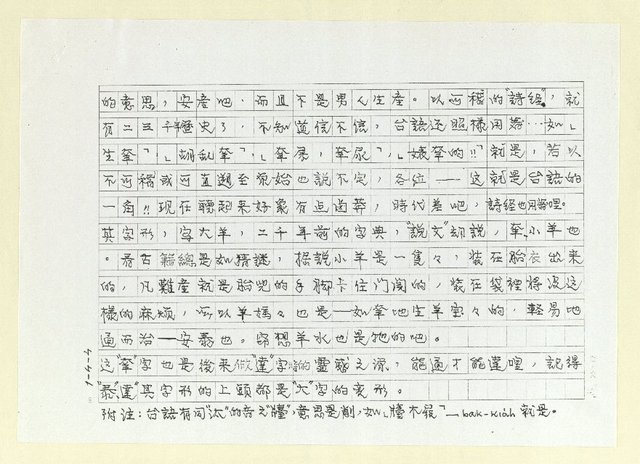 的意思，安產吧，而且不是男人生產。以可稽的"詩經"，就
有二三千年歷史了，不知道信不信，台語还照樣用着…如「
生羍」，「胡乱羍」，「羍屎，羍尿」，「羍的!!」就是，若以
不可稽或可直遡至原始也說不定，各位——这就是台語的
一角!!現在聽起來好象有点齒莽，時代差吧，詩經也用哩。
其字形，字大羊，二千年前的字典，"說文"却說，羍，小羊也
。看古籍總是如猜謎，據說小羊是一隻々，裝在胎衣出來
的，凡難產就是胎兒的手脚卡住门阁的，裝在袋裡將没这
樣的麻烦，所以羊媽々也是一如羍地生羊蛮々的，輕易地
通而治—安泰也。留想羊水也是牠的吧。
这"羍"字也是後來做"達"字時的靈感之源，能通才能達哩，記得
"泰""達"其字形的上頭都是"大"字的変形。
附注：台語有同"汰"的音
意思是削，如「
」—bak-kiàn 就是。
1-4-4